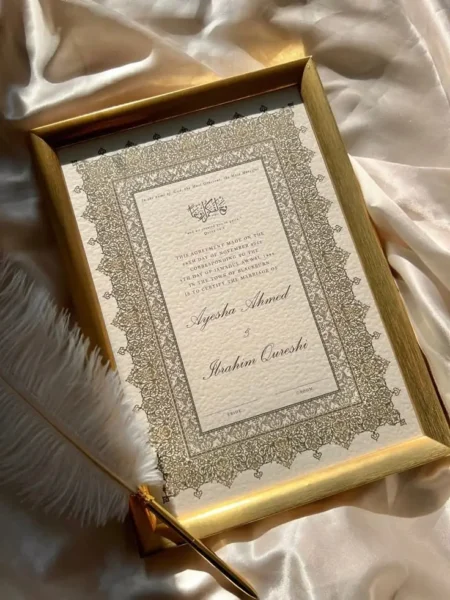 In the name of God, the Most Gracious, the Most Merciful
THIS AGREEMENT MADE ON THE
DAY OF NOVEMBER
CORRESPONDING TO THE
DAY OF JUMADA AL-
IN THE TOWN OF BLACKBURN
IS TO CERTIFY THE MARRIAGE OF
Ayesha Ahmed
&
Ibrahim Qureshi
BRIDE
GROOM